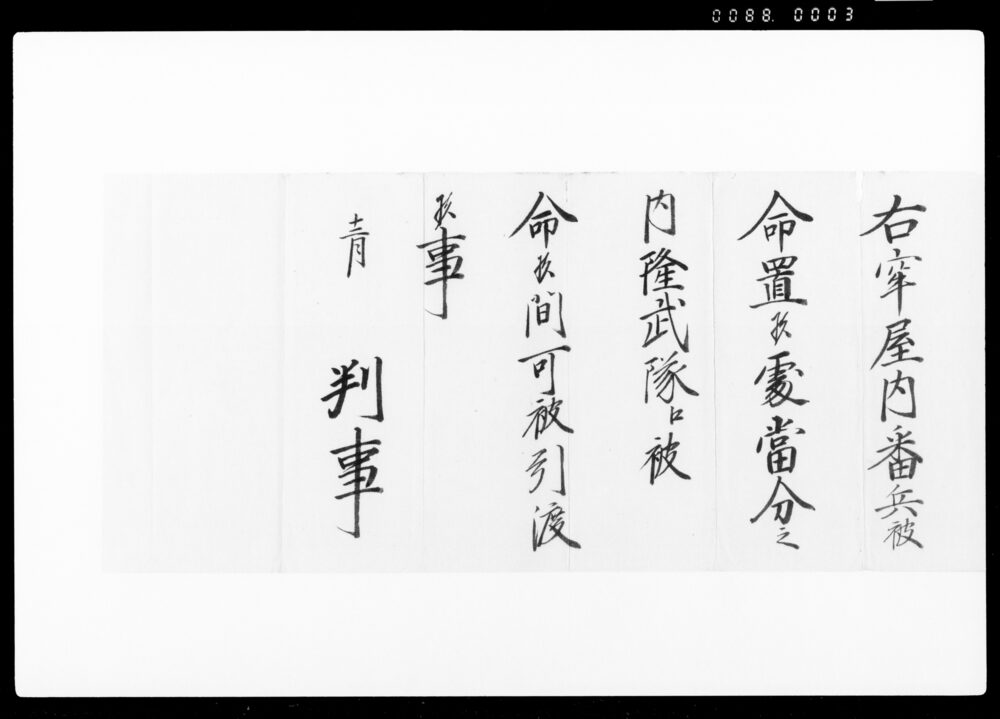 0088. 0003
右窂屋内番兵被
命置候處當分之
内隆武隊江被
命候間可被引渡
候事
十二月
判事